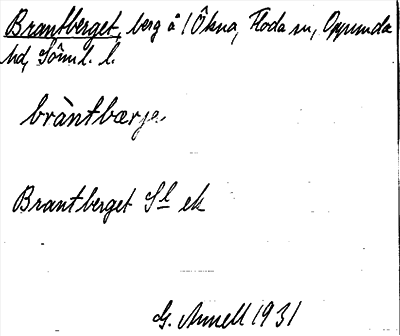 Brantberget, berg å 1 Ökna, Floda sn, Oppunda
hd, Sörml. l.
bràntbærjə
Brantberget Sl ek
G. Annell 1931